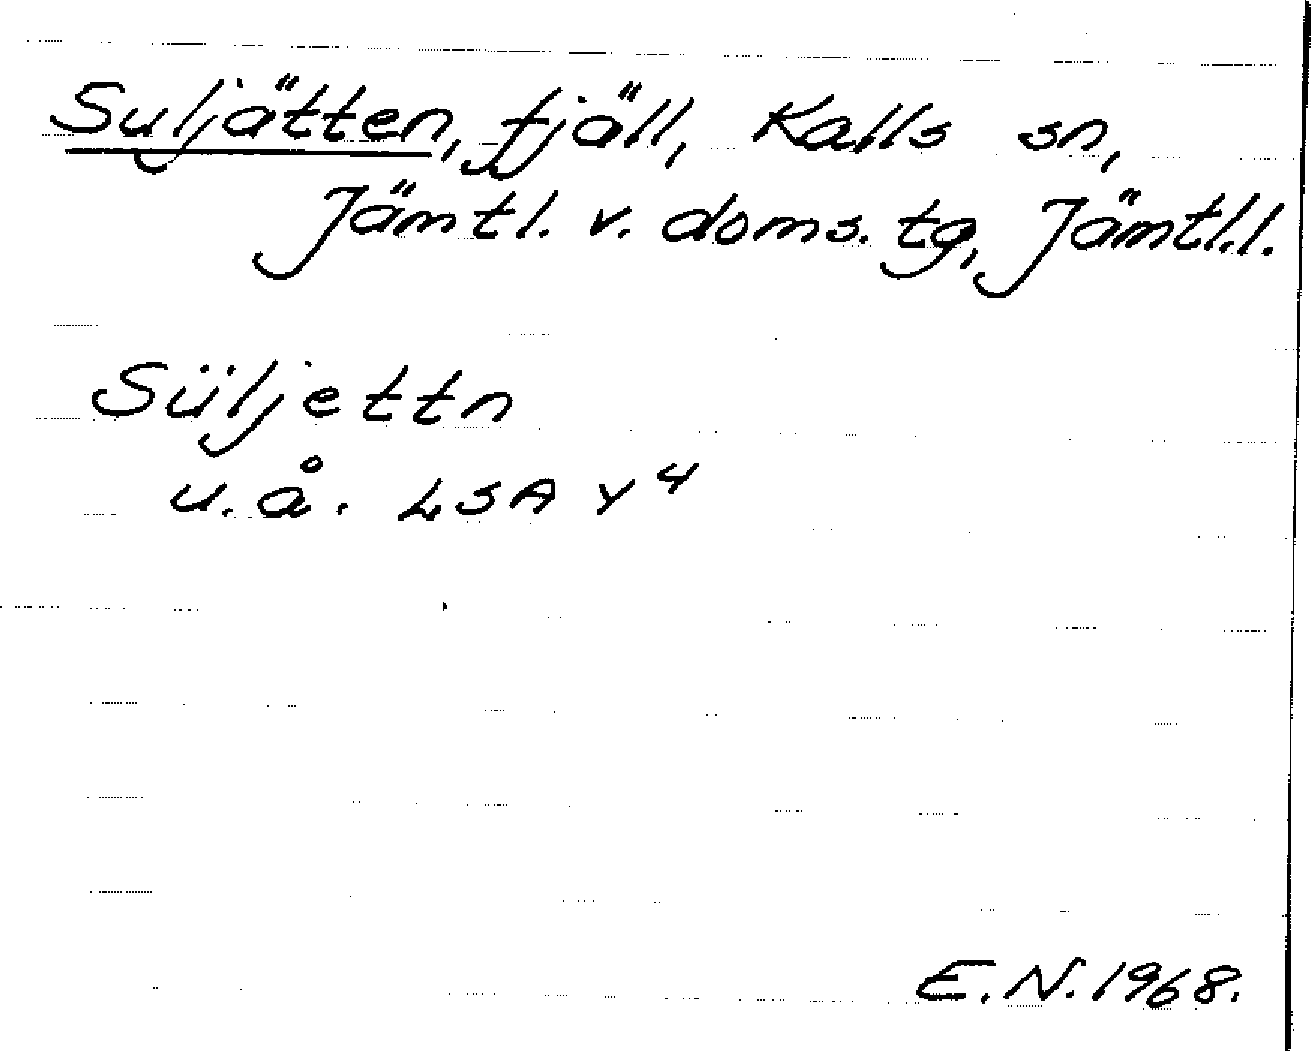 Suljätten, fjäll, Kalls sn,
Jämtl. v. doms. tg, Jämtl.l.
Süljettn
u.å. LSA Y4
E.N. 1968.